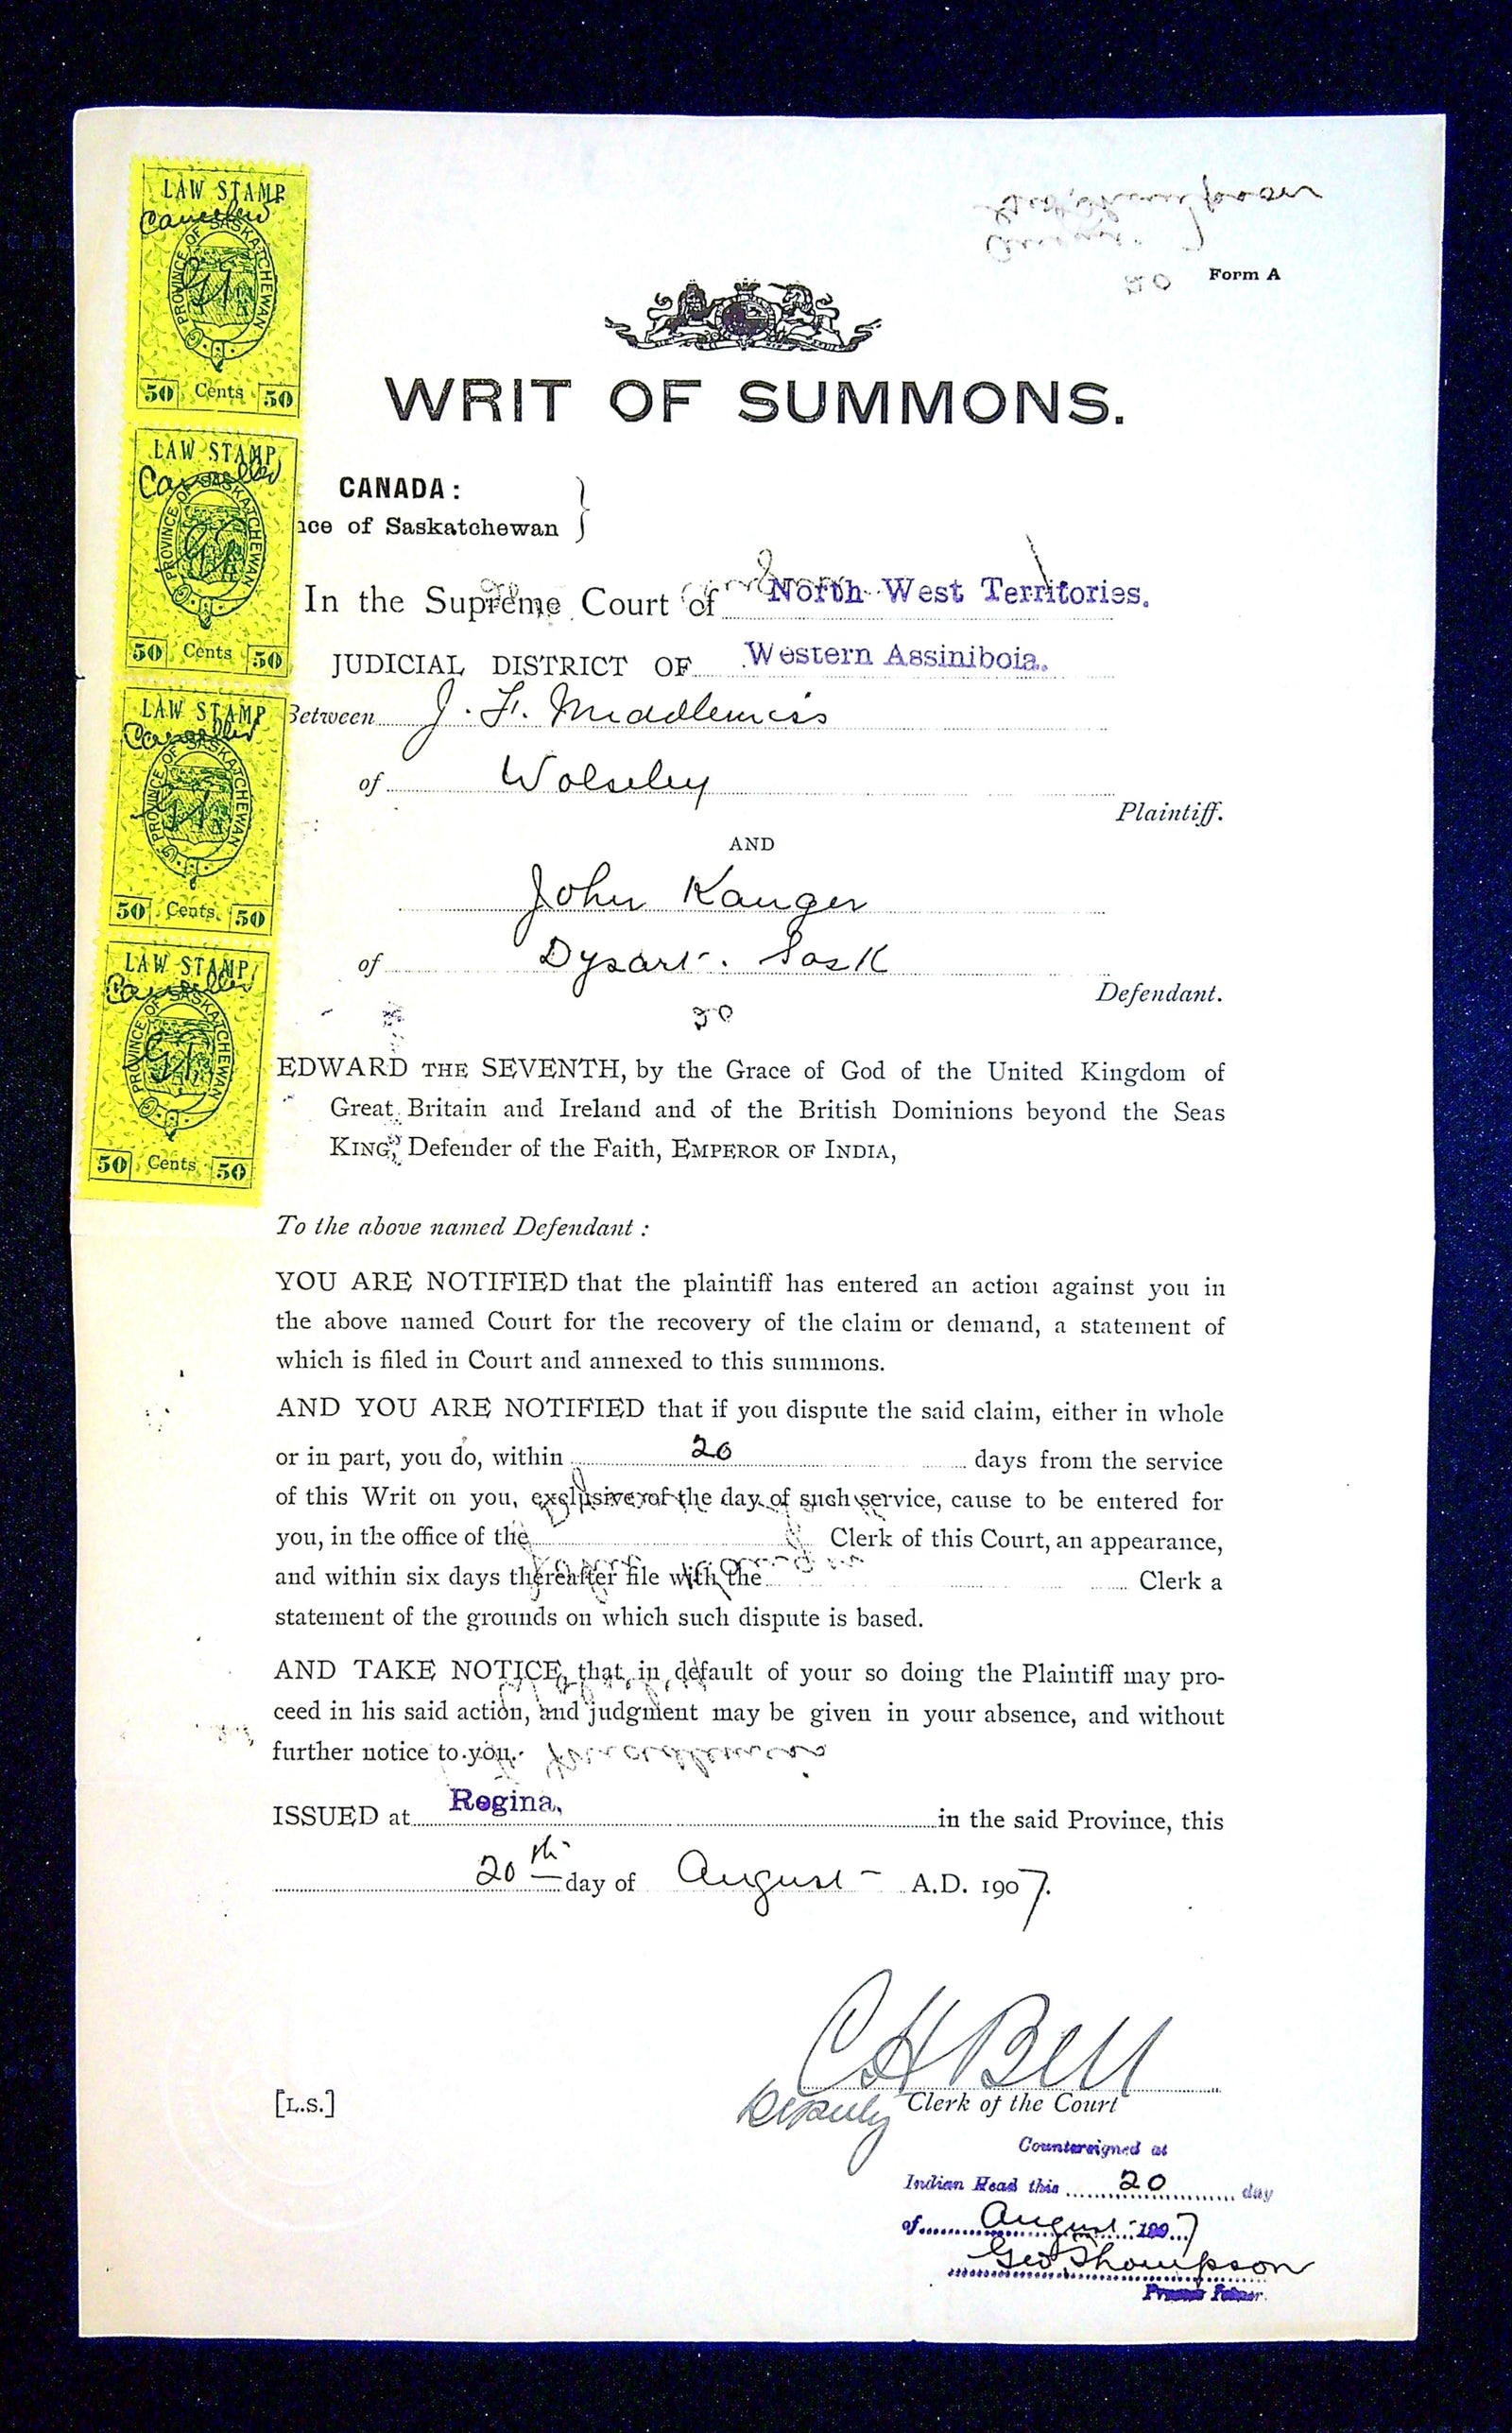 LAW STAMP
Cancelled
PROVINCE OF SASKATCHEWAN
50 Cents 50
LAW STAMP
Cancelled
PROVINCE OF SASKATCHEWAN
50 Cents 50
LAW STAMP
Cancelled
PROVINCE OF SASKATCHEWAN
50 Cents 50
LAW STAMP
Cancelled
PROVINCE OF SASKATCHEWAN
50 Cents 50
Form A
WRIT OF SUMMONS.
CANADA:
nce of Saskatchewan
In the Supreme Court of North West Territories.
JUDICIAL DISTRICT OF Western Assiniboia.
Between J. F. Middlemiss
of Wolseley
Plaintiff.
AND
John Kanger
of Dysart. Sask
Defendant.
EDWARD THE SEVENTH, by the Grace of God of the United Kingdom of
Great Britain and Ireland and of the British Dominions beyond the Seas
KING, Defender of the Faith, EMPEROR OF INDIA,
To the above named Defendant:
YOU ARE NOTIFIED that the plaintiff has entered an action against you in
the above named Court for the recovery of the claim or demand, a statement of
which is filed in Court and annexed to this summons.
AND YOU ARE NOTIFIED that if you dispute the said claim, either in whole
or in part, you do, within 20 days from the service
of this Writ on you, exclusive of the day of such service, cause to be entered for
you, in the office of the Clerk of this Court, an appearance,
and within six days thereafter file with the Clerk a
statement of the grounds on which such dispute is based.
AND TAKE NOTICE, that in default of your so doing the Plaintiff may pro-
ceed in his said action, and judgment may be given in your absence, and without
further notice to you.
ISSUED at Regina, in the said Province, this
20th day of August A.D. 1907.
C H Bell
[L.S.]
Deputy Clerk of the Court
Countersigned at
Indian Head this 20 day
of August 1907
Geo Thompson